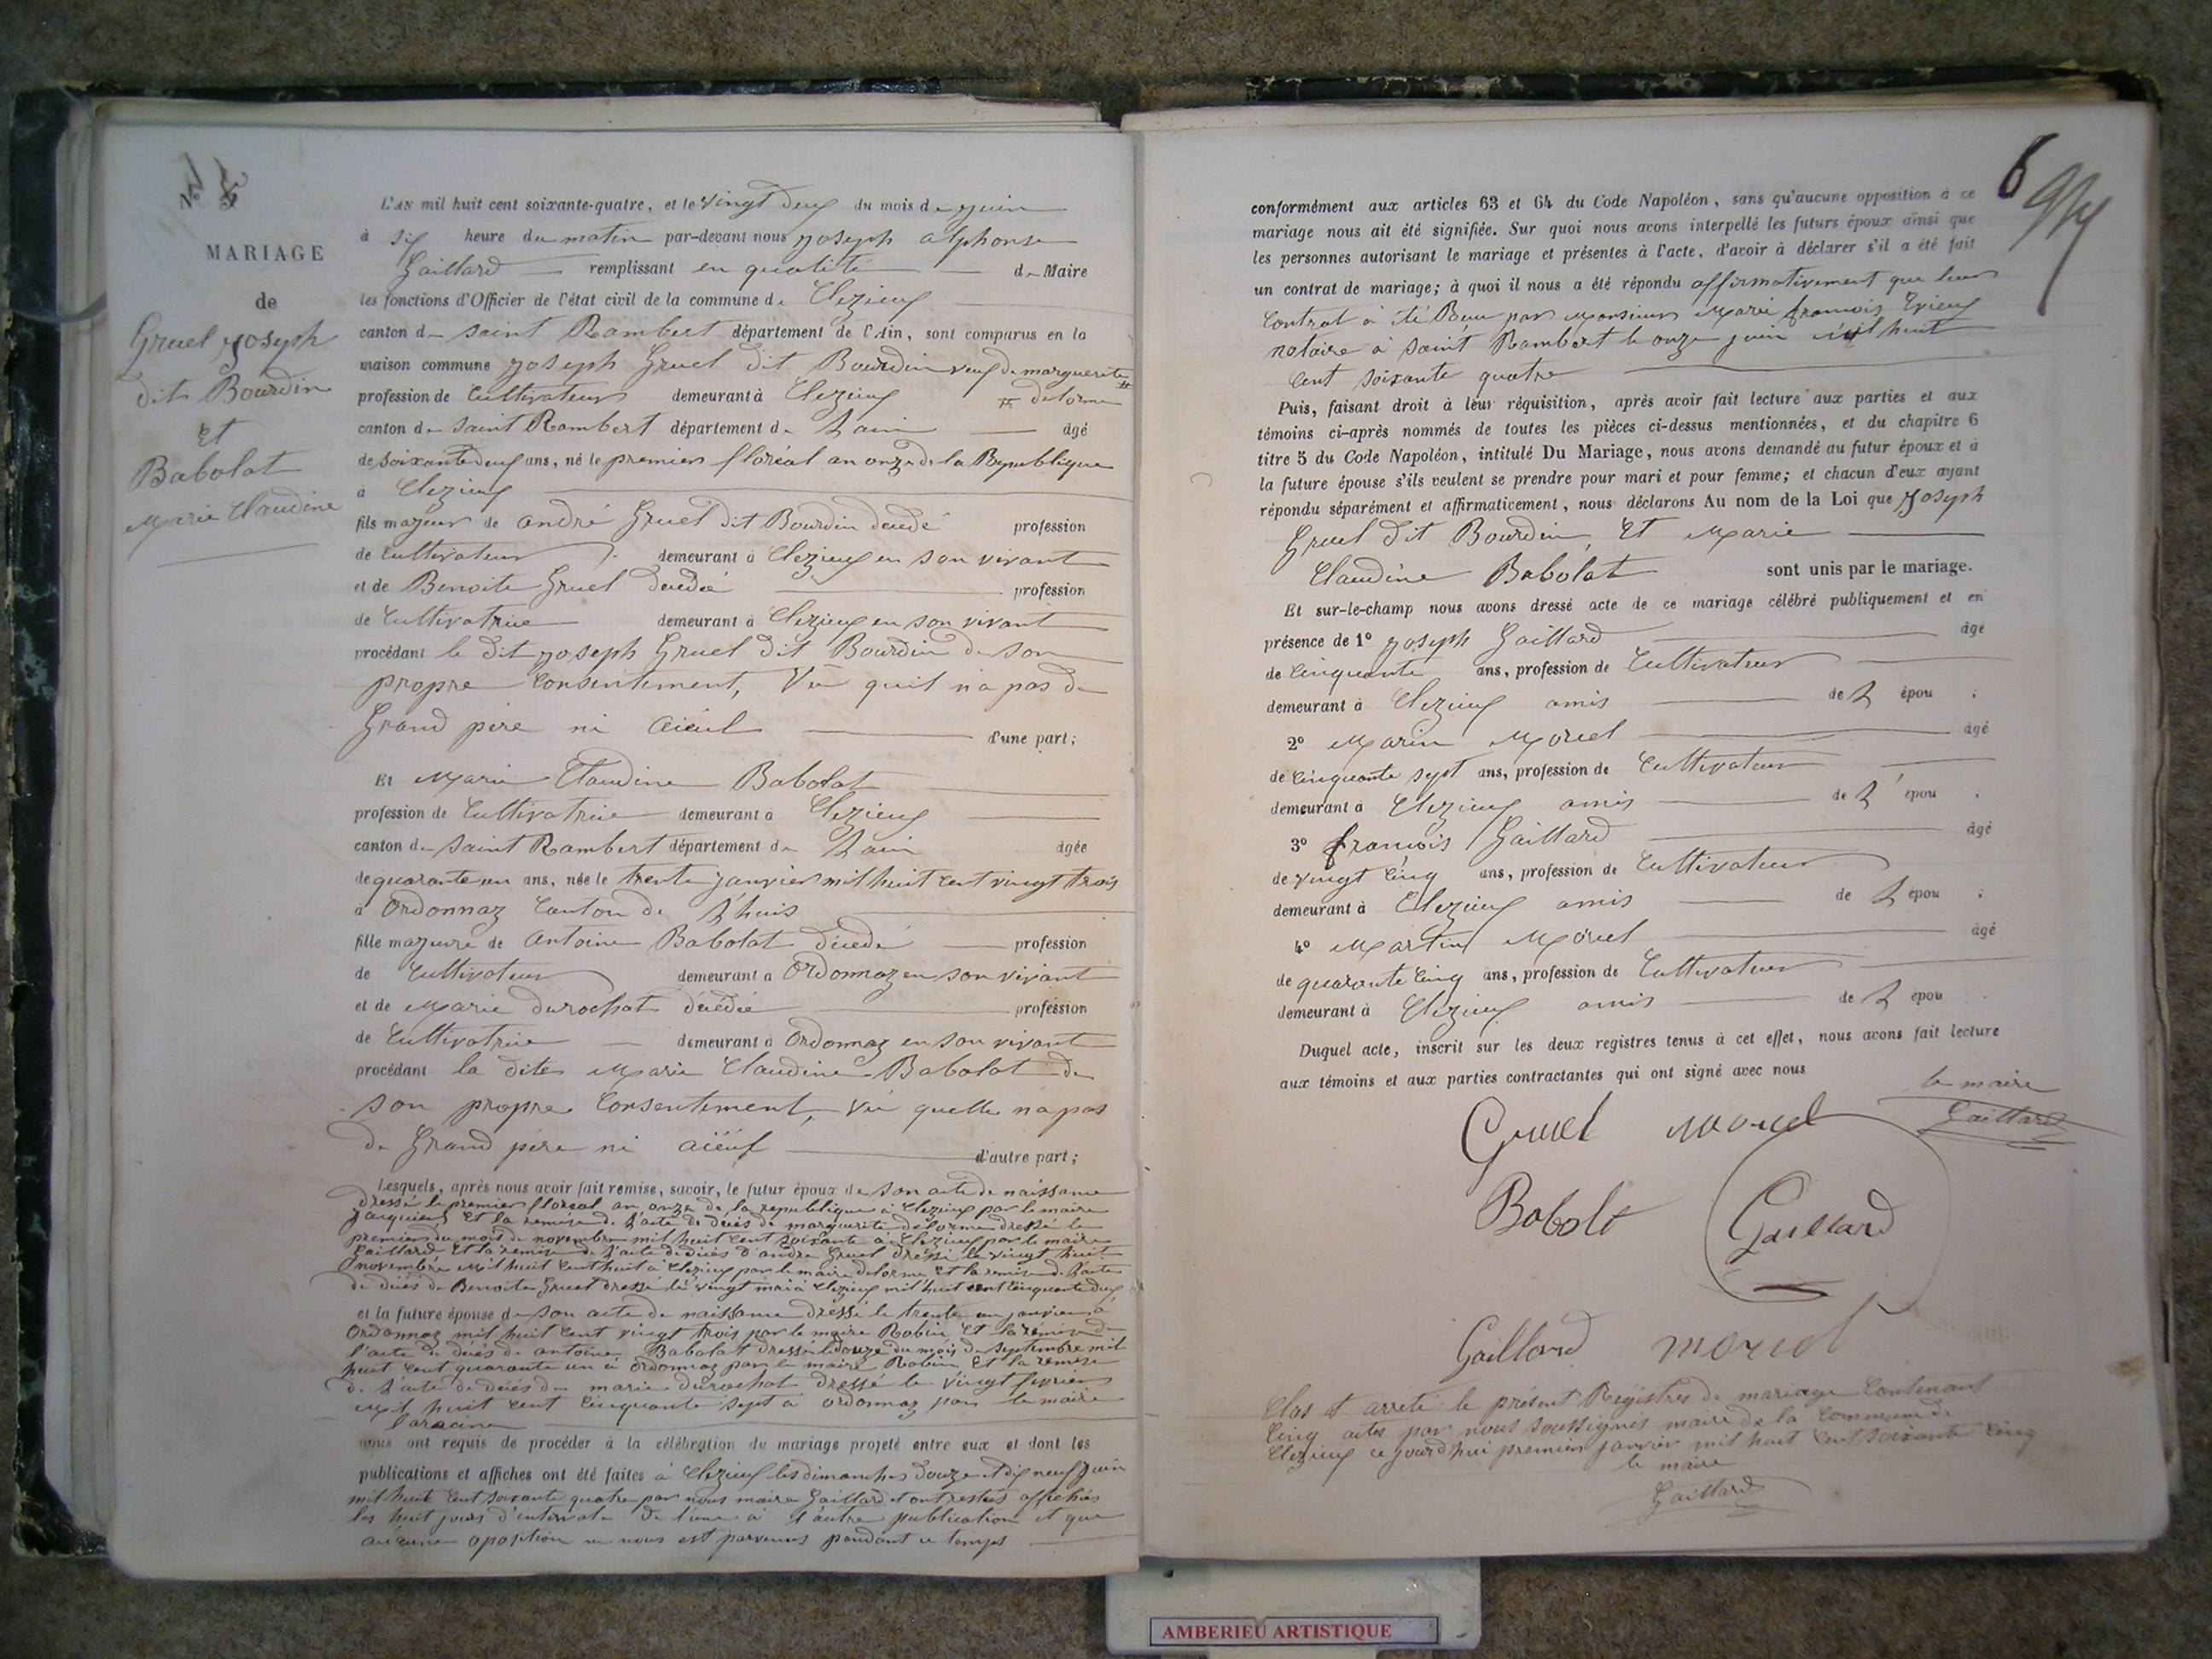 N° 5
MARIAGE
de
Gruel Joseph
dit Bourdin
Et
Babolat
Marie Claudine
L'an mil huit cent soixante-quatre, et le vingt deux du mois de juin
à six heure du matin par-devant nous Joseph alphonse
Gaillard remplissant en qualité de Maire
les fonctions d'Officier de l'état civil de la commune de Clezieux
canton de saint Rambert département de l'Ain, sont comparus en la
maison commune Joseph Gruel dit Bourdin veuf de marguerite #
profession de Cultivateur demeurant à Clezieux # delorme
canton de saint Rambert département de Lain âgé
de soixante deux ans, né le premier floréal an onze de la Republique
à Clezieux
fils majeur de andré Gruel dit Bourdin decedé profession
de Cultivateur demeurant à Clezieux en son vivant
et de Benoite Gruel decedée profession
de Cultivatrice demeurant à Clezieux en son vivant
procédant le dit Joseph Gruel dit Bourdin de son
propre Consentement, Vu quil n'a pas de
Grand père ni aieul d'une part;
Et Marie Claudine Babolat
profession de Cultivatrice demeurant à Clezieux
canton de saint Rambert département de Lain âgée
de quarante un ans, née le trente janvier mil huit cent vingt trois
à Ordonnaz Canton de L'huis
fille majeure de antoine Babolat décedé profession
de Cultivateur demeurant à Ordonnaz en son vivant
et de Marie durochat décédée profession
de Cultivatrice demeurant à Ordonnaz en son vivant
procédant la dite Marie Claudine Babolat de
son propre Consentement, Vu quelle n'a pas
de Grand père ni aïeul d'autre part;
Lesquels, après nous avoir fait remise, savoir, le futur époux de son acte de naissance
dressé le premier floreal an onze de la republique à Clezieux par le maire
Et la remise de l'acte de décès de marguerite delorme dressé le
premier du mois de novembre mil huit cent soixante à Clezieux par le maire
Gaillard Et la remise de l'acte de décès d'andré Gruel dressé le vingt huit
novembre mil huit cent huit à Clezieux par le maire delorme Et la remise de l'acte
de décès de Benoite Gruel dressé le vingt mai à Clezieux mil huit cent cinquante deux
et la future épouse de son acte de naissance dressé le trente un janvier à
Ordonnaz mil huit cent vingt trois par le maire Robin Et la remise de
l'acte de décès de antoine Babolat dressé le douze du mois de septembre mil
huit cent quarante un à Ordonnaz par le maire Robin Et la remise
de l'acte de décès de marie durochat dressé le vingt fevrier
mil huit cent cinquante sept à Ordonnaz par le maire
Laracine
nous ont requis de procéder à la célébration du mariage projeté entre eux et dont les
publications et affiches ont été faites à Clezieux les dimanches douze et dix neuf juin
mil huit cent soixante quatre par nous maire Gaillard et ont restées affichées
les huit jours d'intervale de l'une à l'autre publication et que
aucune oposition ne nous est parvenus pendant ce temps
6
conformément aux articles 63 et 64 du Code Napoléon, sans qu'aucune opposition à ce
mariage nous ait été signifiée. Sur quoi nous avons interpellé les futurs époux ainsi que
les personnes autorisant le mariage et présentes à l'acte, d'avoir à déclarer s'il a été fait
un contrat de mariage; à quoi il nous a été répondu affirmativement que leur
Contrat a été Recu par Monsieur Marie francois Trieux
notaire à saint Rambert le onze juin mil huit
Cent soixante quatre
Puis, faisant droit à leur réquisition, après avoir fait lecture aux parties et aux
témoins ci-après nommés de toutes les pièces ci-dessus mentionnées, et du chapitre 6
titre 5 du Code Napoléon, intitulé Du Mariage, nous avons demandé au futur époux et à
la future épouse s'ils veulent se prendre pour mari et pour femme; et chacun d'eux ayant
répondu séparément et affirmativement, nous déclarons Au nom de la Loi que Joseph
Gruel dit Bourdin, Et Marie
Claudine Babolat sont unis par le mariage.
Et sur-le-champ nous avons dressé acte de ce mariage célébré publiquement et en
présence de 1° Joseph Gaillard âgé
de Cinquante ans, profession de Cultivateur
demeurant à Clezieux amis de L époux
2° Marin Morel âgé
de Cinquante sept ans, profession de Cultivateur
demeurant à Clezieux amis de L' épou
3° francois Gaillard âgé
de vingt Cinq ans, profession de Cultivateur
demeurant à Clezieux amis de L épou ;
4° Martin Morel âgé
de quarante Cinq ans, profession de Cultivateur
demeurant à Clezieux amis de L épou
Duquel acte, inscrit sur les deux registres tenus à cet effet, nous avons fait lecture
aux témoins et aux parties contractantes qui ont signé avec nous
le maire
Gaillard
Gruel Morel
Babolt Gaillard
Gaillard morel
Clos et arrêté le présent Registres de mariage Contenant
Cinq actes par nous soussignés maire de la Commune de
Clezieux ce jourd'hui premier janvier mil huit Cent soixante Cinq
le maire
Gaillard
AMBERIEU ARTISTIQUE